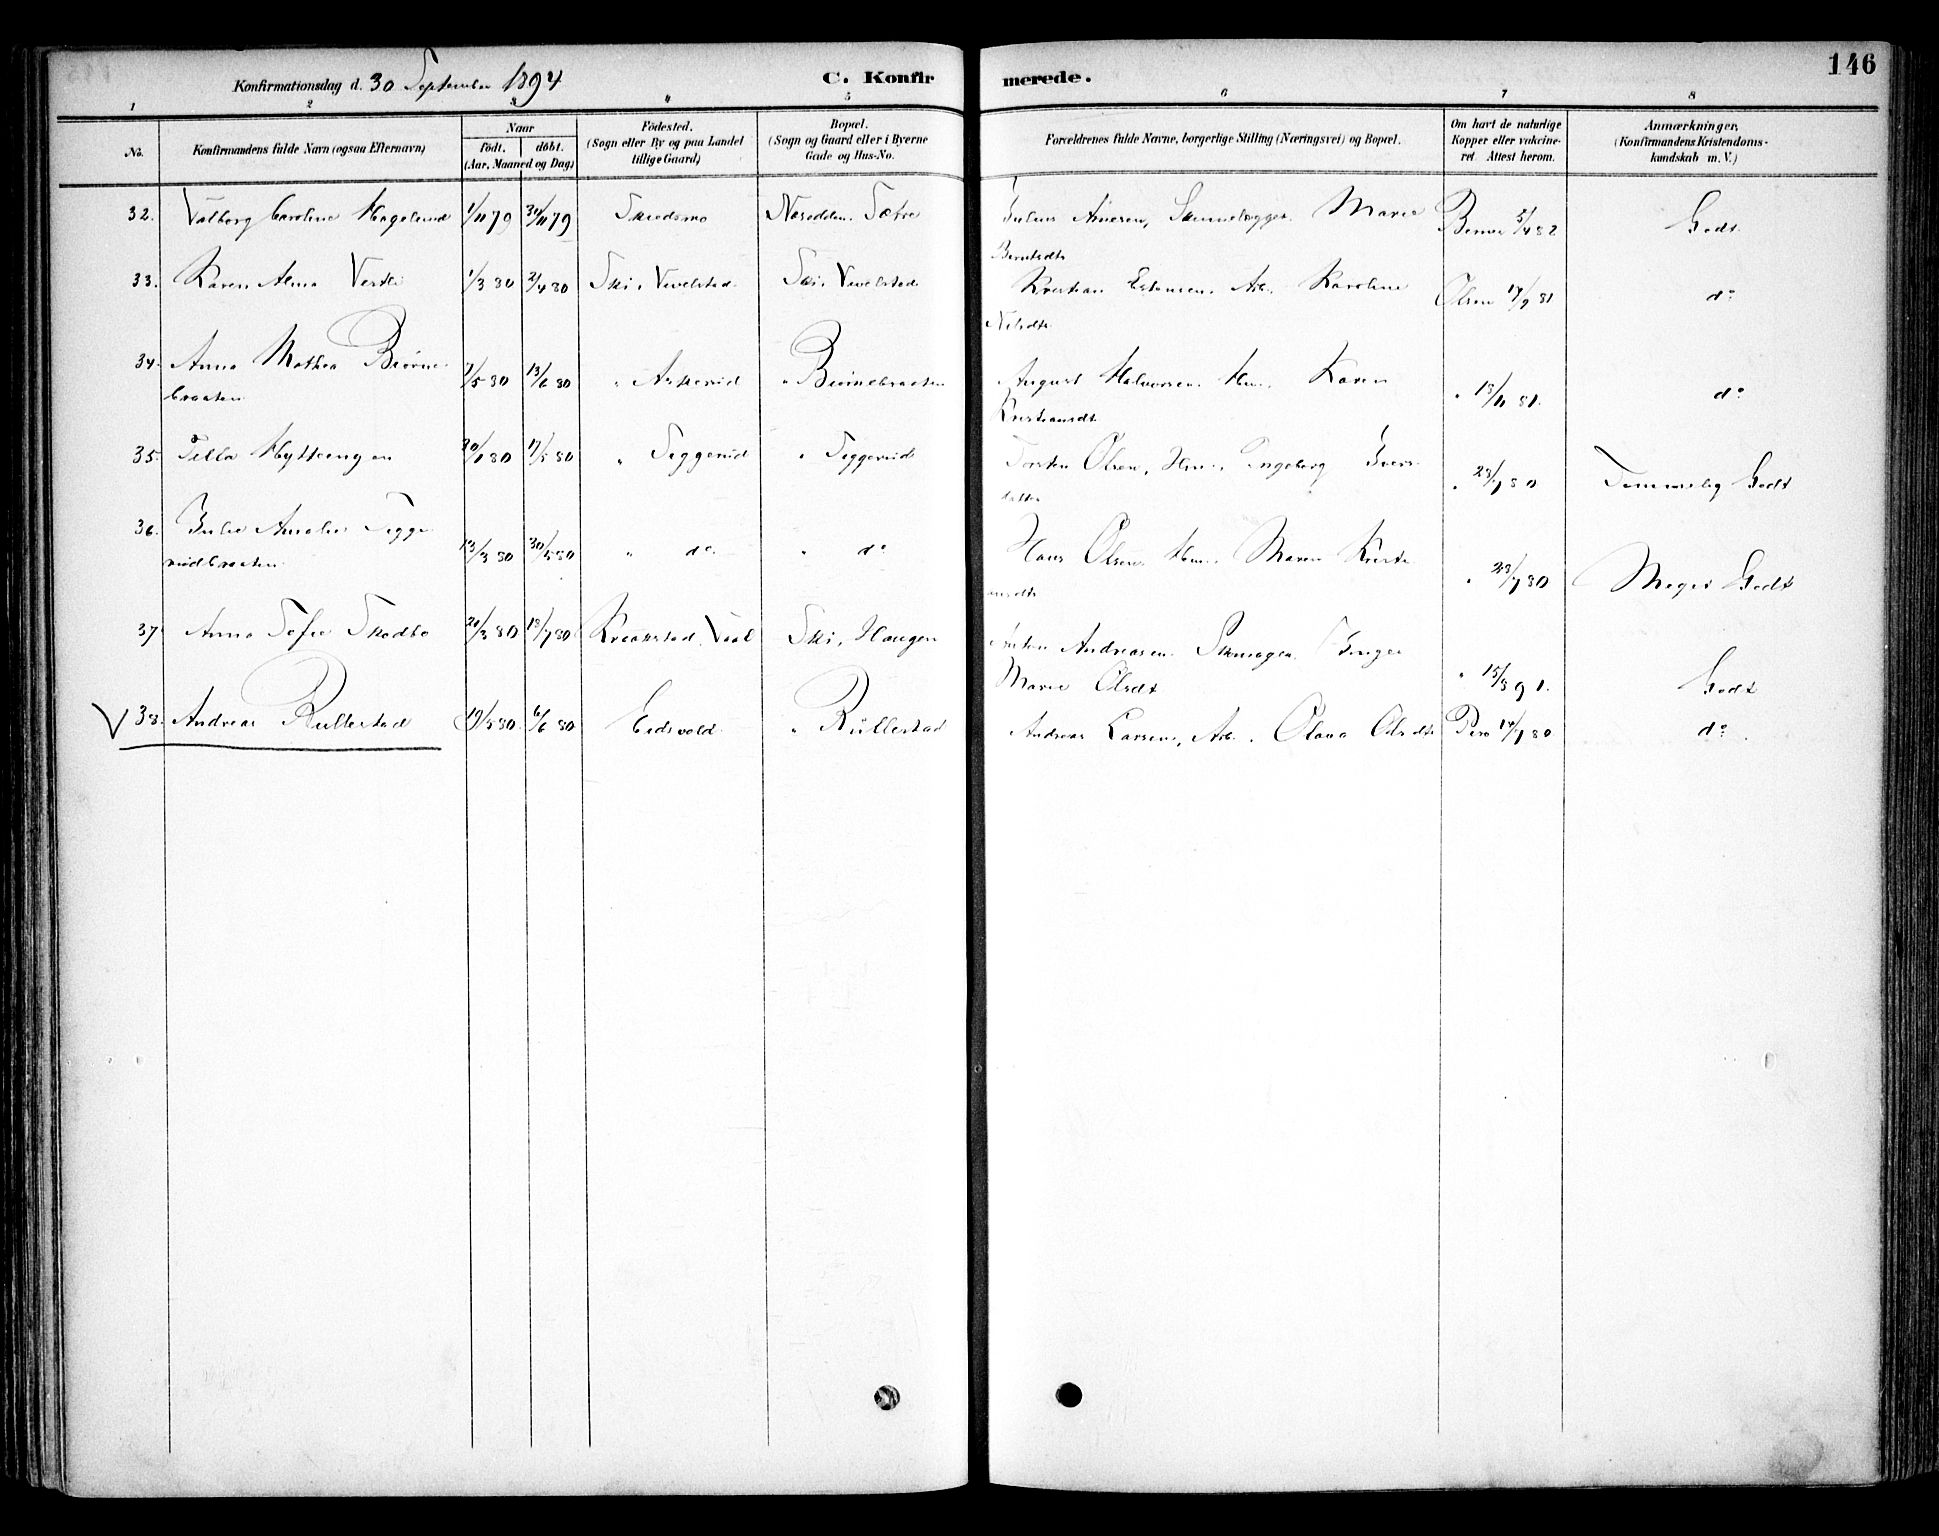 146
Konfirmationsdag d. 30 September 1894
C. Konfirmerede.
1 2 3 4 5 6 7 8
No.
Konfirmandens fulde Navn (ogsaa Efternavn)
Naar
födt. döbt.
(Aar, Maaned og Dag)
Födested.
(Sogn eller By og paa Landet
tillige Gaard)
Bopæl.
(Sogn og Gaard eller i Byerne
Gade og Hus-No.
Forældrenes fulde Navne, borgerlige Stilling (Næringsvei) og Bopæl.
Om havt de naturlige
Kopper eller vakcine-
ret. Attest herom.
Anmærkninger.
(Konfirmandens Kristendoms-
kundskab m. V.)
32. Valborg Caroline Hagelund 1/11 79 30/11 79 Skedsmo Nesodden. Sætre Julius Arnesen, Marie 5/4 82 Godt
Berntsdt.
33. Karen Alma 1/3 80 2/4 80 Ski, Vevelstad Ski, Vevelstad Kristian Arb. Karoline Olsen 17/9 81 do
Nilsdt.
34. Anna Mathea Bjørne- 7/5 80 13/6 80 " Askerud " Bjørnebraaten August Halvorsen. Hm. Karen " 13/11 81. do
braaten Kristiansdt.
35. Hyttengen 30/1 80 17/5 80 " Siggerud " Siggerud Torsten Olsen, Hm. Ingeborg Ivers- " 23/7 80 Temmelig Godt
datter
36. Julie Amalie Sigge- 13/3 80 30/5 80 " do " do Hans Olsen Hm. Maren Kristi- " 23/7 80 Meget Godt
rudbraaten ansdt.
37. Anna Sofie Skodbo 20/3 80 18/7 80 Kraakstad, Ski, Haugen Anton Andreasen. Skomager. Inger " 15/3 91. Godt
Marie Olsdt
V 38. Andreas Rullestad 19/3 80 6/6 80 Eidsvold " Rullestad Andreas Larsen, Arb. Olava Olsdt. 14/7 80 do